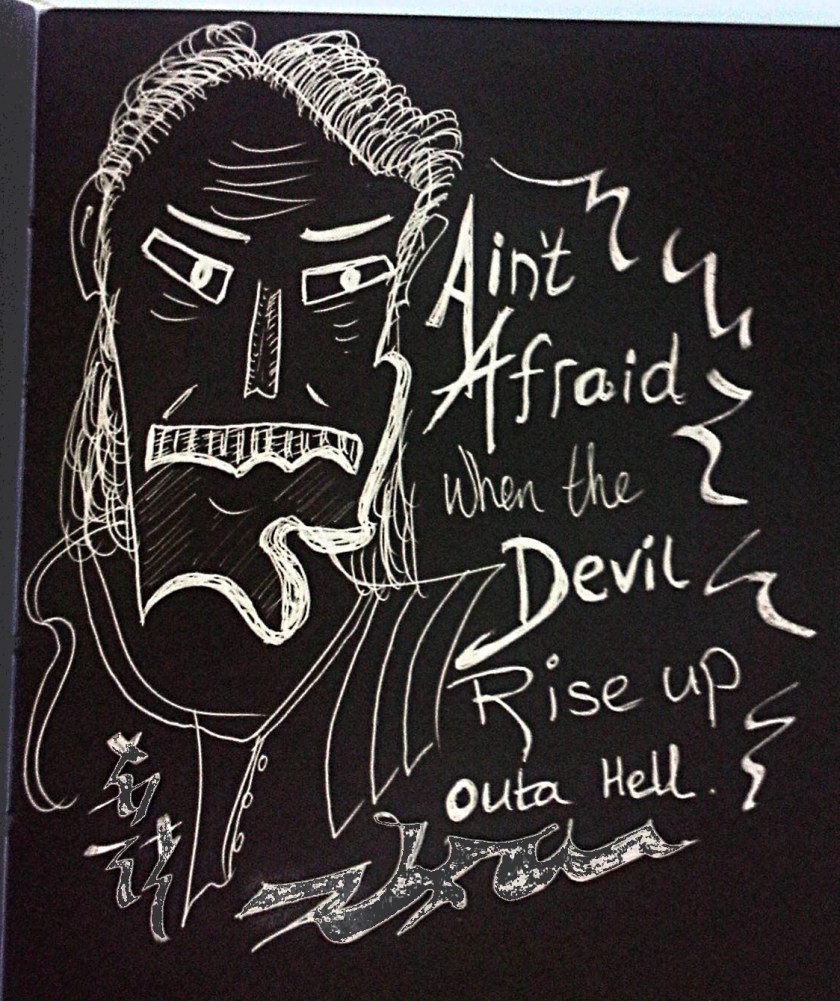 Ain't
Afraid
when the
Devil
Rise up
Outa Hell.